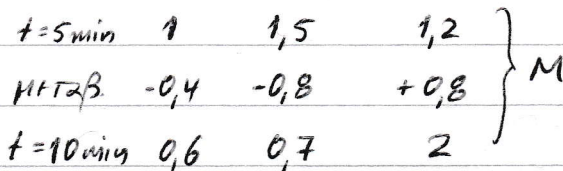 t=5min 1 1,5 1,2
μεταβ. -0,4 -0,8 +0,8 } M
t=10min 0,6 0,7 2